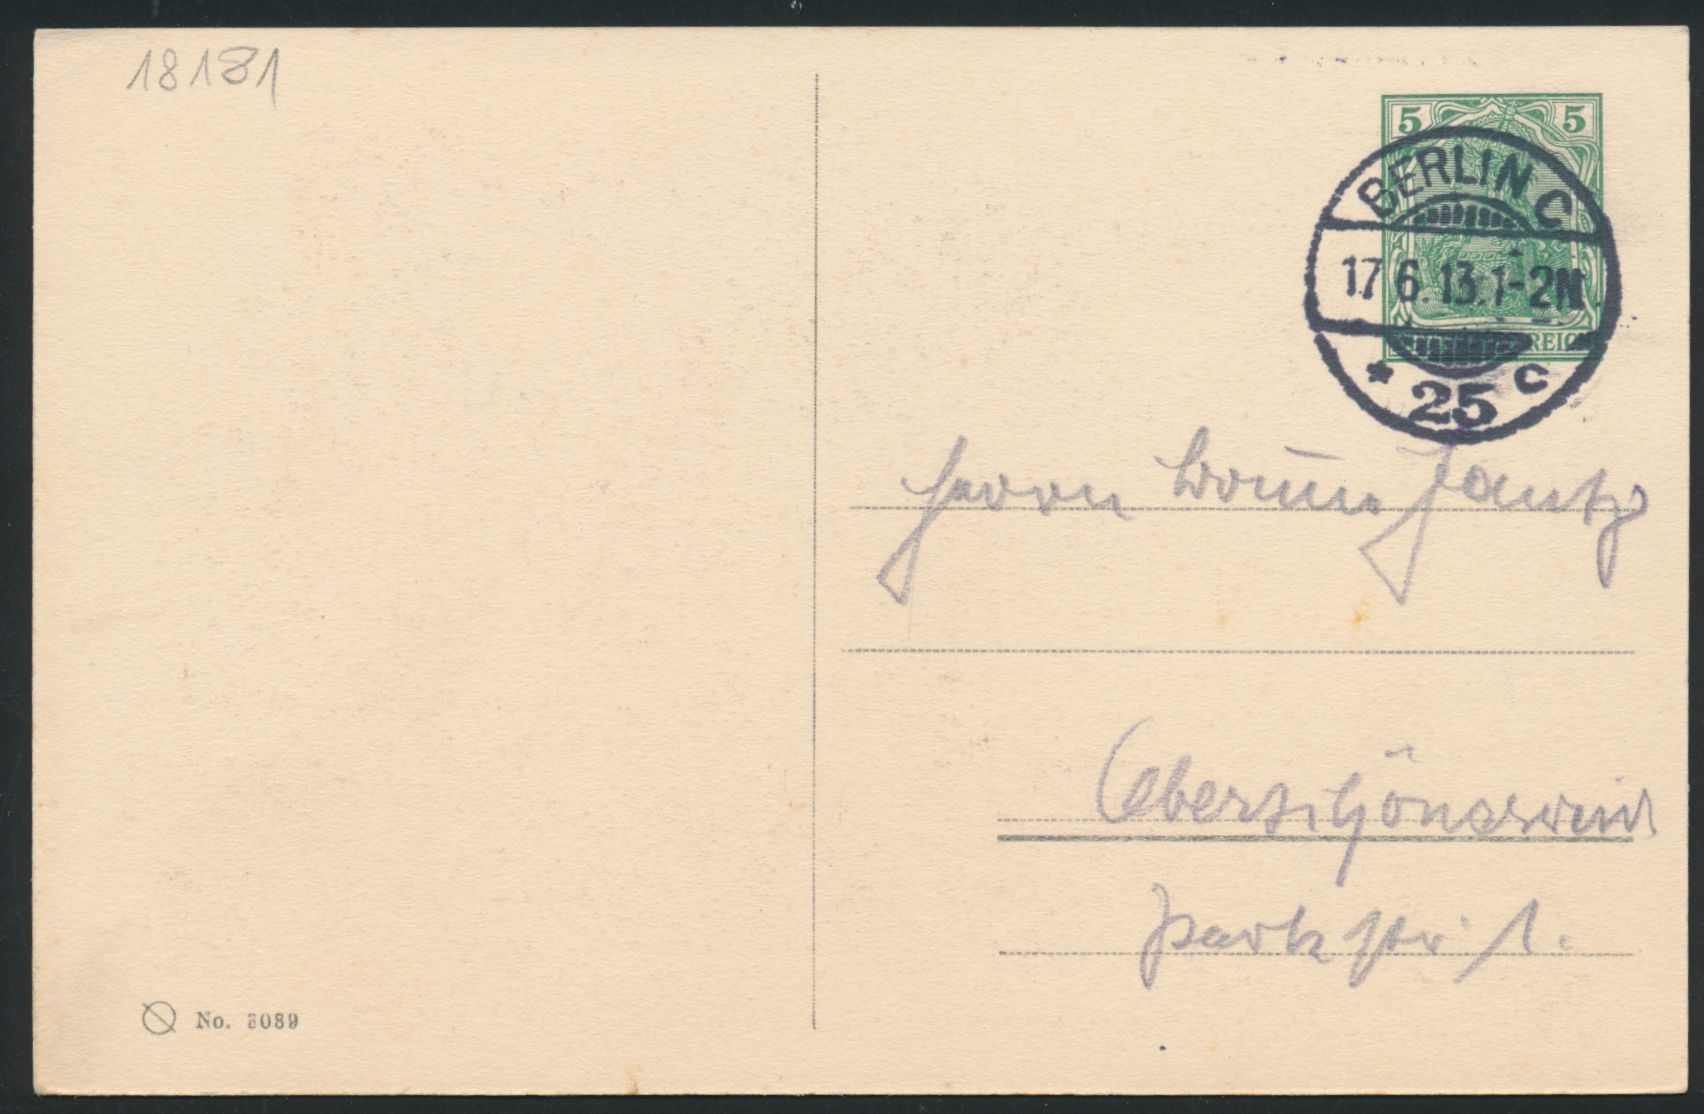 18181
5 5
BERLIN C
17.6.13.1-2N.
* 25 c
REICH
Herrn Bruno Jantz
Oberschöneweide
Parkstr. 1.
No. 3089